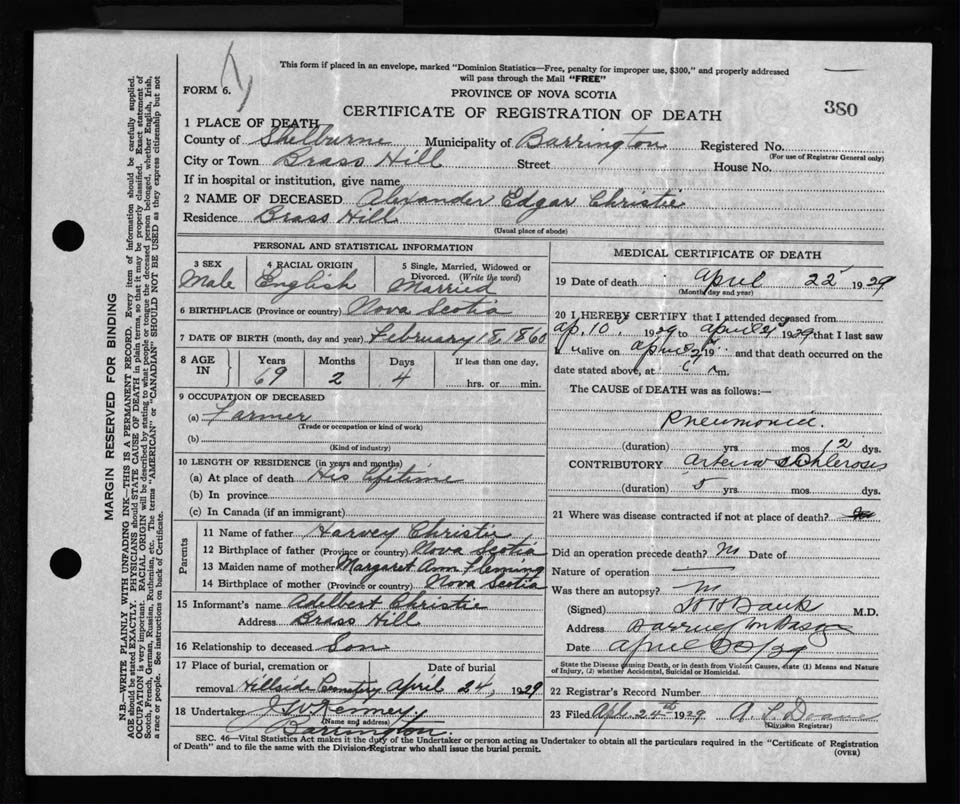 This form if placed in an envelope, marked "Dominion Statistics—Free, penalty for improper use, $300," and properly addressed
will pass through the Mail "FREE"
FORM 6.
PROVINCE OF NOVA SCOTIA
CERTIFICATE OF REGISTRATION OF DEATH
380
1 PLACE OF DEATH
County of Shelburne Municipality of Barrington Registered No.
(For use of Registrar General only)
City or Town Brass Hill Street House No.
If in hospital or institution, give name
2 NAME OF DECEASED Alexander Edgar Christie
Residence Brass Hill
(Usual place of abode)
PERSONAL AND STATISTICAL INFORMATION
3 SEX
Male
4 RACIAL ORIGIN
English
5 Single, Married, Widowed or
Divorced. (Write the word)
Married
6 BIRTHPLACE (Province or country) Nova Scotia
7 DATE OF BIRTH (month, day and year) February 18, 1860
8 AGE IN
Years Months Days If less than one day,
69 2 4 hrs. or min.
9 OCCUPATION OF DECEASED
(a) Farmer
(Trade or occupation or kind of work)
(b)
(Kind of industry)
10 LENGTH OF RESIDENCE (in years and months)
(a) At place of death His lifetime
(b) In province
(c) In Canada (if an immigrant)
Parents
11 Name of father Harvey Christie
12 Birthplace of father (Province or country) Nova Scotia
13 Maiden name of mother Margaret Ann Fleming
14 Birthplace of mother (Province or country) Nova Scotia
15 Informant's name Adelbert Christie
Address Brass Hill
16 Relationship to deceased Son
17 Place of burial, cremation or Date of burial
removal Hillside Cemetery April 24, 1929
18 Undertaker J W Kenney
(Name and address)
Barrington
MEDICAL CERTIFICATE OF DEATH
19 Date of death April 22 1929
(Month, day and year)
20 I HEREBY CERTIFY that I attended deceased from
Ap. 10 1929 to April 1929 that I last saw
alive on April and that death occurred on
date stated above, at m.
The CAUSE of DEATH was as follows:—
Pneumonia.
(duration) yrs. mos. 12 dys.
CONTRIBUTORY Arterio Schlerosis
(duration) 5 yrs. mos. dys.
21 Where was disease contracted if not at place of death?
Did an operation precede death? No Date of
Nature of operation
Was there an autopsy? No
(Signed) M.D.
Address Barrington Passage
Date April /29
State the Disease causing Death, or in death from Violent Causes, state (1) Means and Nature
of Injury, (2) whether Accidental, Suicidal or Homicidal.
22 Registrar's Record Number
23 Filed Apl. 24th 1929 A. L. Doane
(Division Registrar)
SEC. 46—Vital Statistics Act makes it the duty of the Undertaker or person acting as Undertaker to obtain all the particulars required in the "Certificate of Registration
of Death" and to file the same with the Division Registrar who shall issue the burial permit.
(OVER)
MARGIN RESERVED FOR BINDING
N.B.—WRITE PLAINLY WITH UNFADING INK—THIS IS A PERMANENT RECORD. Every item of information should be carefully supplied.
AGE should be stated EXACTLY. PHYSICIANS should STATE CAUSE OF DEATH in plain terms, so that it may be properly classified. Exact statement of
OCCUPATION is very important. RACIAL ORIGIN will be described by stating to what people or tongue the deceased person belonged, whether English, Irish,
Scotch, French, German, Russian, Ruthenian, etc. The terms "AMERICAN" or "CANADIAN" SHOULD NOT BE USED as they express citizenship but not
a race or people. See instructions on back of Certificate.